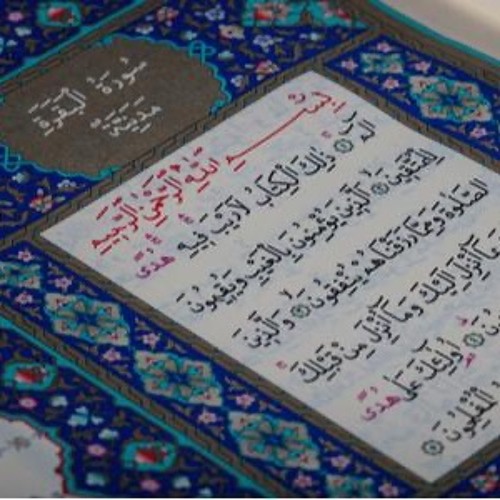 سُورَةُ الْبَقَرَةِ
مَدَنِيَّة
بِسْمِ اللَّهِ الرَّحْمَٰنِ الرَّحِيمِ
الم ﴿١﴾ ذَٰلِكَ الْكِتَابُ لَا رَيْبَ فِيهِ هُدًى
لِلْمُتَّقِينَ ﴿٢﴾ الَّذِينَ يُؤْمِنُونَ بِالْغَيْبِ وَيُقِيمُونَ
الصَّلَوٰةَ وَمِمَّا رَزَقْنَاهُمْ يُنْفِقُونَ ﴿٣﴾ وَالَّذِينَ
بِمَا أُنْزِلَ إِلَيْكَ وَمَا أُنْزِلَ مِنْ قَبْلِكَ
أُولَٰئِكَ عَلَىٰ هُدًى
الْمُفْلِحُونَ ﴿٥﴾